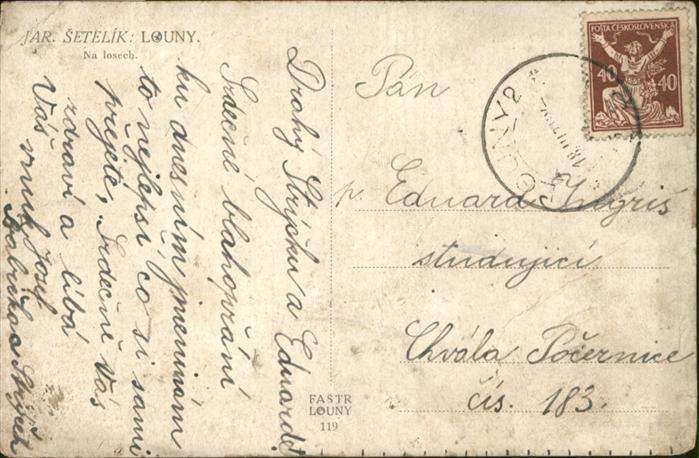 JAR. ŠETELÍK: LOUNY.
Na losech.
Drahý Strýčku a Eduarde!
Srdečné blahopřání
ku dnešním jmeninám
to nejlepší co si sami
přejete, Srdečně Vás
zdraví a líbá
Váš vnuk Josef
Babička a Strýček
FASTR
LOUNY
119
POŠTA ČESKOSLOVENSKÁ
40 40
LOUNY 2
Pán
p. Eduard Ingriš
studující
Chvála Počernice
čís. 183.